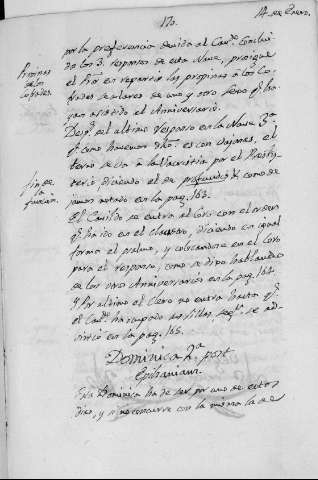 170.
14. de Enero.
Propinas
de los
Cofrades.
por la preferencia devida al Cav.º Conclui
dos los 3. responsos de esta Nave, prosigue
el Pro en repartir las propinas a los Co
frades seglares de uno y otro sexo q.e ha
yan asistido al Anniversario.
Desp.s del ultimo responso en la Nave 3.ª
q.e como havemos dho. es con capones, el
terno se va â la Sacristia por el Presby
terio diciendo el de profundis &, como de
jamos notado en la pag. 163.
fin de
la
funcion.
El Cavildo se entra al Coro con el orden
q.e ha ido en el claustro, diciendo en igual
forma el psalmo, y colocandose en el Coro
para el responso, como se dijo hablando
de los otros Anniversarios en la pag. 164.
Y por ultimo el Clero no entra hasta q.e
el Cav.º ha ocupado sus sillas, seg.n se ad
virtió en la pag. 165.
Dominica 2.ª post
Epiphaniam.
Esta Dominica ha de ser por uno de estos
dias, y si no concurre con la misma la de